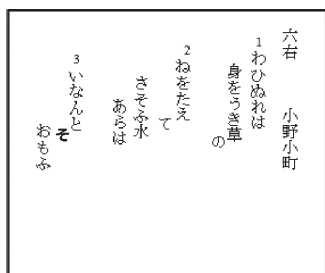 六右　小野小町
1わひぬれは
身をうき草
の
2ねをたえ
て
さそふ水
あらは
3いなんと
そ
おもふ